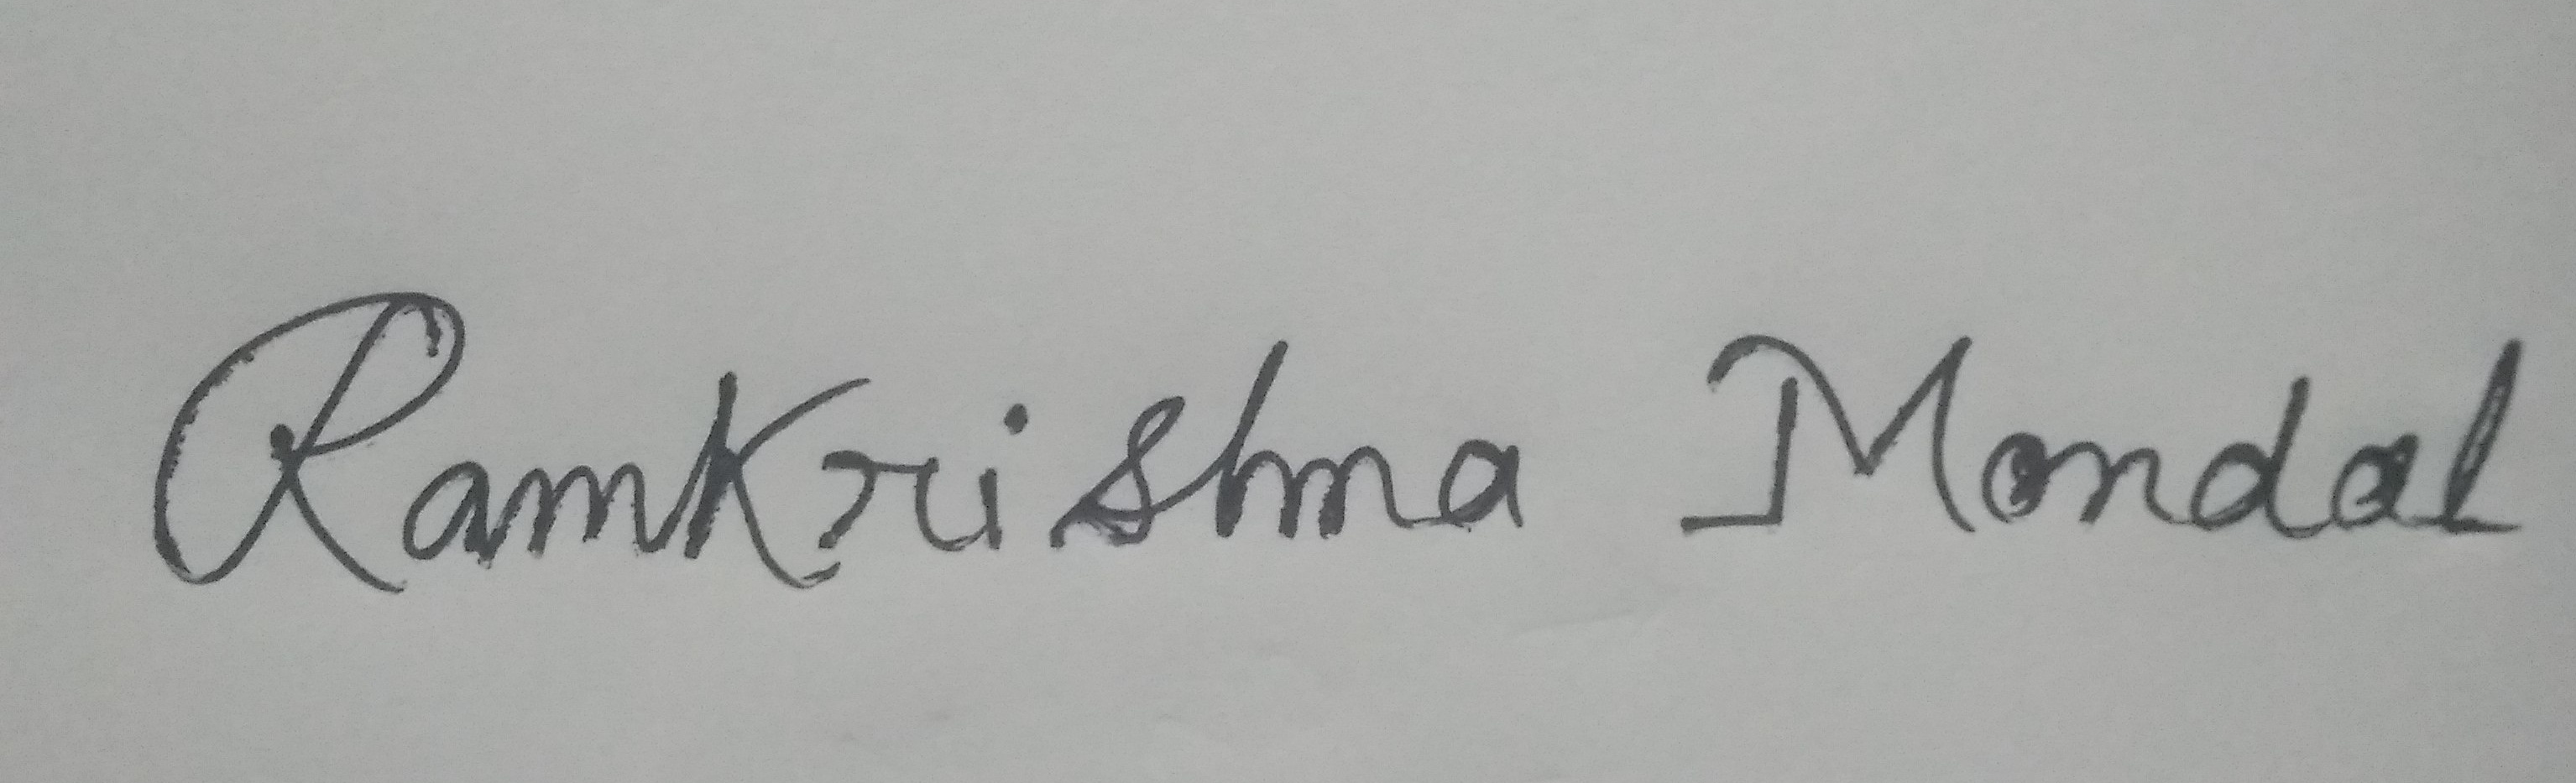 RamKrishna Mondal